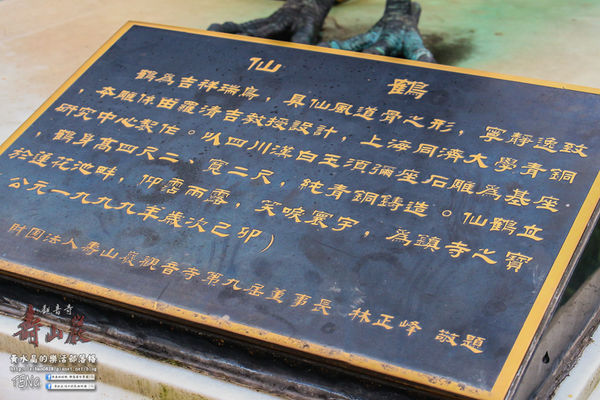 仙鶴
鶴為吉祥瑞鳥，具仙風道骨之形，寧靜逸致
，本雕係由羅清吉教授設計，上海同濟大學青銅
研究中心製作。以四川漢白玉須彌座石雕為基座
，鶴身高四尺二、寬二尺，純青銅鑄造。仙鶴立
於蓮花池畔，仰露雨露，笑唳寰宇，為鎮寺之寶
公元一九九九年歲次己卯）
財團法人壽山巖觀音寺第九屆董事長 林正峰 敬題
觀音寺
壽山巖
黃水晶的樂活部落格